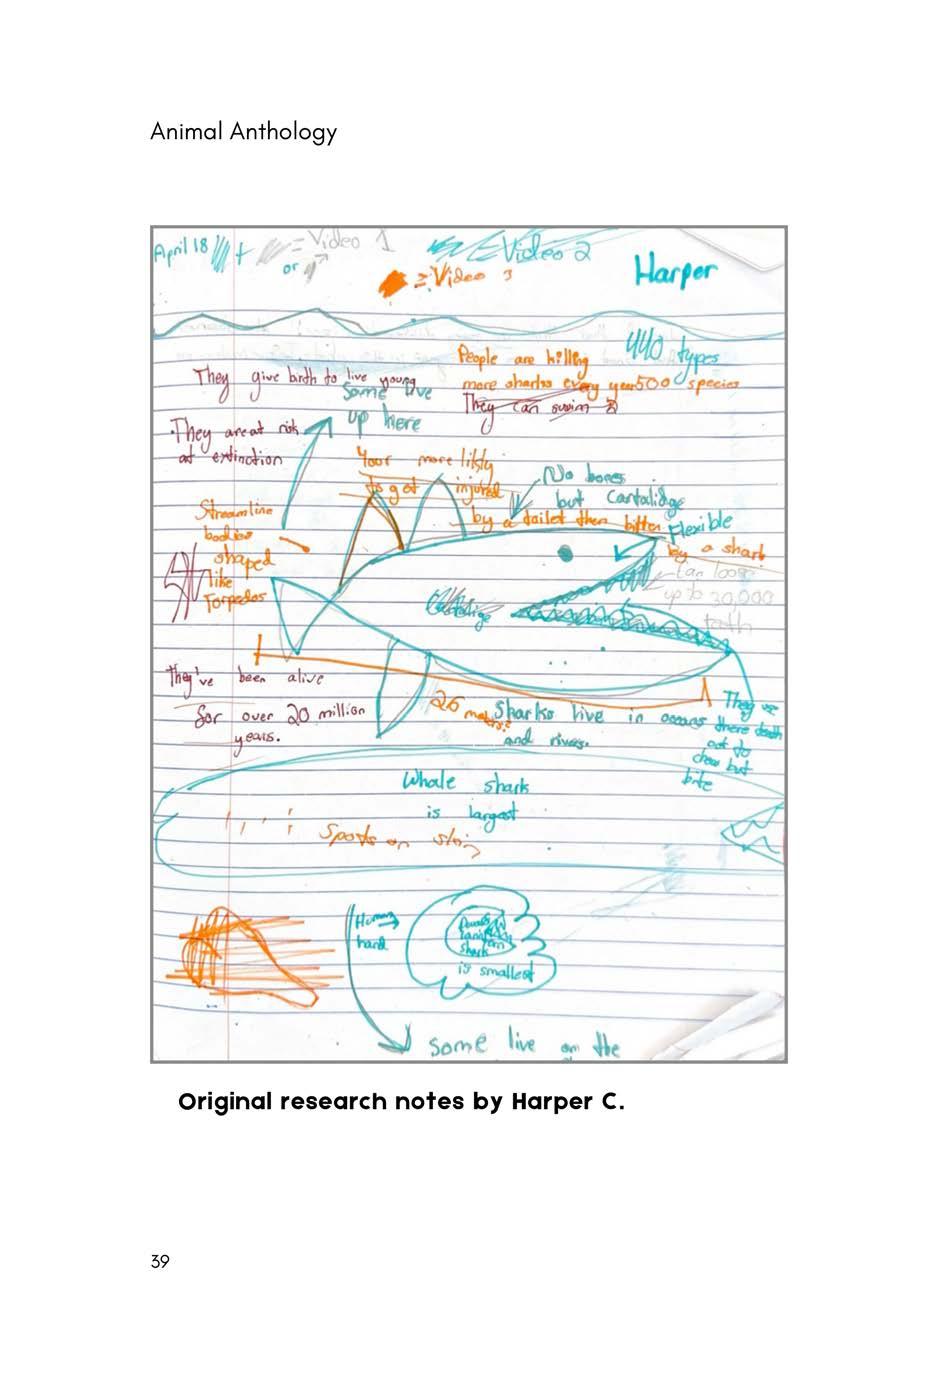 Animal Anthology
April 18 + = Video 1 = Video 2
or
= Video 3
Harper
440 types
People are killing
more sharks every year 500 species
They can swim
They give birth to live young
Some live
up here
They are at risk
at extinction
Your more likly
to get injured
by a toilet then bitten
by a shark
No bones
but Cantalidge
Flexible
Streamline
bodies
shaped
like
Torpedos
can loose
up to 30,000
teeth
They've been alive
for over 20 million
years.
26
Sharks live in oceans
and rivers.
They use
there teeth
not to
chew but
bite
Whale shark
is largest
Spots on skin
Human
hand
shark
is smallest
some live on the
Original research notes by Harper C.
39